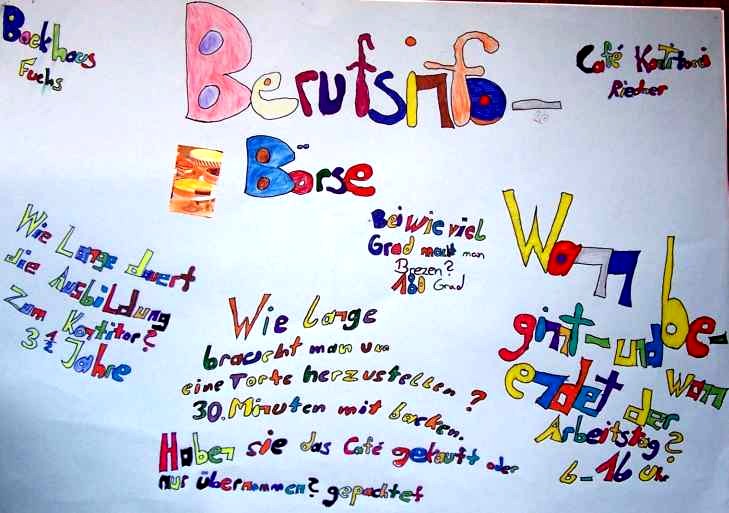 Backhaus
Fuchs
Berufsinfo-
Börse
Café Kontitorei
Riedner
Wie Lange dauert
die Ausbildung
Zum Kontitor?
3 1/2 Jahre
Bei wie viel
Grad macht man
Brezen?
180 Grad
Wie lange
braucht man um
eine Torte herzustellen?
30. Minuten mit backen.
Haben sie das Café gekauft oder
nur übernommen? gepachtet
Wann be-
ginnt-und wann
endet der
Arbeitstag?
6-16 Uhr